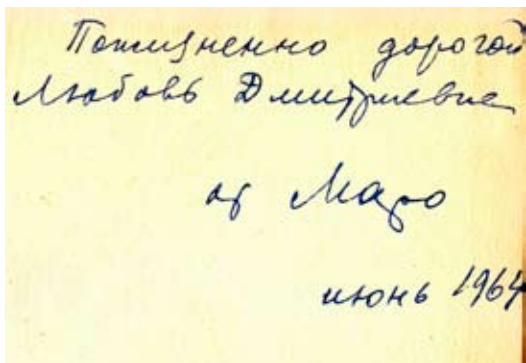 Пожизненно дорогой
Любовь Дмитриевне
от Маро
июнь 1964